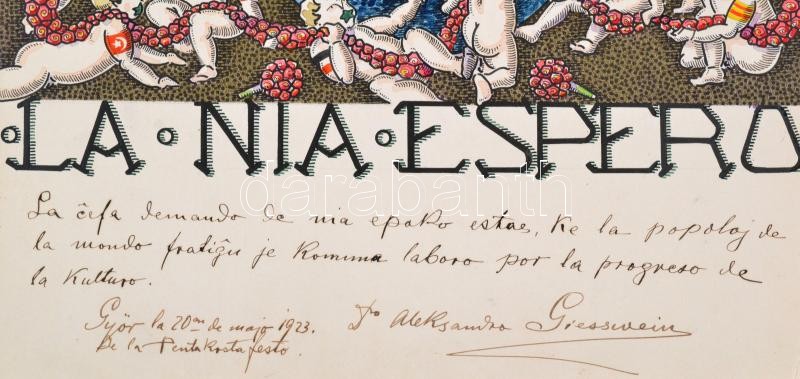 LA NIA ESPERO
La ĉefa demando de nia epoko estas, ke la popoloj de
la mondo fratiĝu je komuna laboro por la progreso de
la kulturo.
Győr la 20an de majo 1923. Dro Aleksandro Giesswein
De la Pentakosta festo.
darabanth